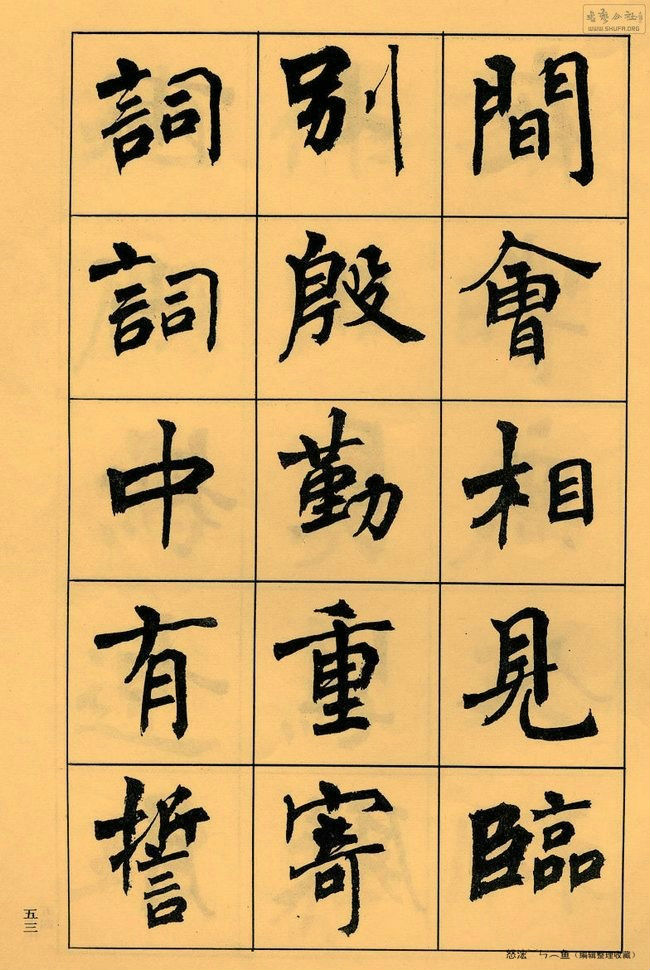 間會相見臨
別殷勤重寄
詞詞中有誓
五三
WWW.SHUFA.ORG
(编辑整理收藏)